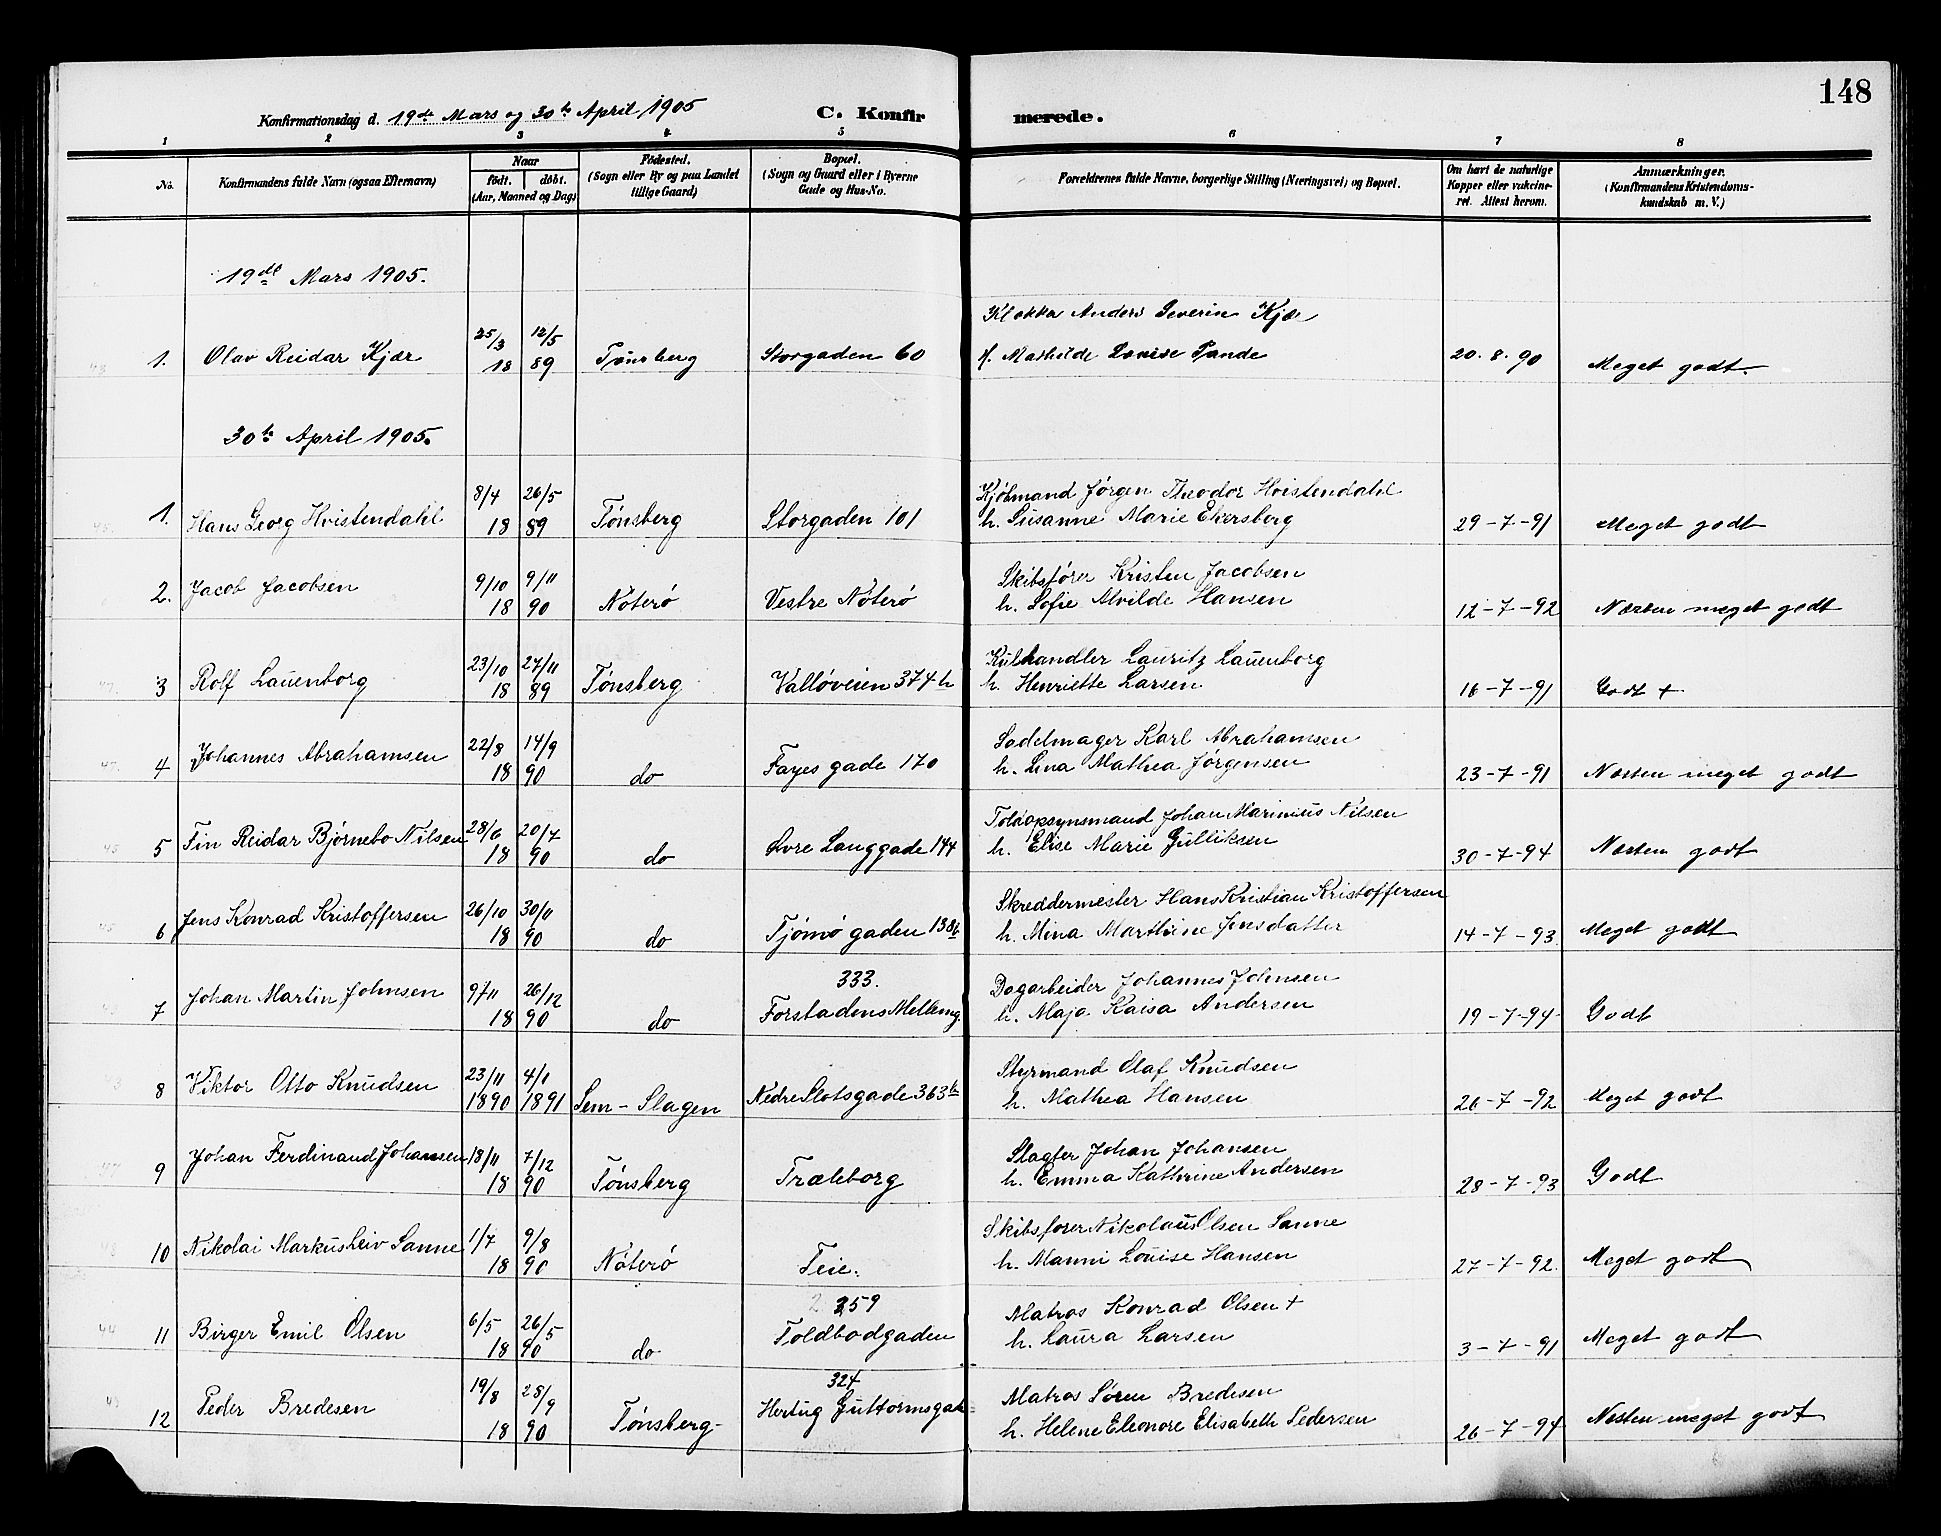 148
Konfirmationsdag d. 19de Mars og 30te April 1905 C. Konfirmerede.
1 2 3 4 5 6 7 8
No. Konfirmandens fulde Navn (ogsaa Efternavn) Naar født. døbt. (Aar, Maaned og Dag) Fødested. (Sogn eller By og paa Landet tillige Gaard) Bopæl. (Sogn og Gaard eller i Byerne Gade og Hus-No. Forældrenes fulde Navne, borgerlige Stilling (Næringsvei) og Bopæl. Om havt de naturlige Kopper eller vakcineret. Attest herom. Anmærkninger. (Konfirmandens Kristendomskundskab m. V.)
19de Mars 1905.
Klokker Anders Severin Kjær
1. Olav Reidar Kjær 25/3 12/5 18 89 Tønsberg Storgaden 60 Mathilde Lovise Tande 20. 8. 90 Meget godt.
30te April 1905.
Kjøbmand Jørgen Theodor Hvistendahl
1. Hans Georg Hvistendahl 8/4 26/5 18 89 Tønsberg Storgaden 101 h. Susanne Marie Ekersberg 29-7-91 Meget godt
Skibsfører Kristen Jacobsen
2. Jacob Jacobsen 9/10 9/11 18 90 Nøterø Vestre Nøterø h. Sofie Alvilde Hansen 12-7-92 Næsten meget godt
Kulhandler Lauritz Lauenborg
3 Rolf Lauenborg 23/10 27/11 18 89 Tønsberg Valløveien 374 b h. Henriette Larsen 16-7-91 Godt +
Sadelmager Karl Abrahamsen
4 Johannes Abrahamsen 22/8 14/9 18 90 do Fayes gade 170 h. Lina Mathea Jørgensen 23-7-91 Næsten meget godt
Toldopsynsmand Johan Marinius Nilsen
5 Fin Reidar Bjørnebo Nilsen 28/6 20/7 18 90 do Øvre Langgade 144 h. Elise Marie Gulliksen 30-7-94 Næsten godt
Skreddermester Hans Kristian Kristoffersen
6 Jens Konrad Kristoffersen 26/10 30/11 18 90 do Tjømø gaden 138b h. Mina Marthine Jensdatter 14-7-93 Meget godt
333. Dagarbeider Johannes Johnsen
7 Johan Martin Johnsen 9/11 26/12 18 90 do Forstadens Mellemg. h. Maja Kaisa Andersen 19-7-94 Godt
Styrmand Olaf Knudsen
8 Viktor Otto Knudsen 23/11 4/1 1890 1891 Sem - Slagen Nedre Slotsgade 363b h. Mathea Hansen 26-7-92 Meget godt
Slagter Johan Johansen
9 Johan Ferdinand Johansen 18/11 7/12 18 90 Tønsberg Træleborg h. Emma Kathrine Andersen 28-7-93 Godt
Skibsfører Nikolaus Olsen Sanne
10 Nikolai Markus Leiv Sanne 1/7 9/8 18 90 Nøterø Teie. h. Manni Louise Hansen 27-7-92. Meget godt
359 Matros Konrad Olsen +
11 Birger Emil Olsen 6/5 26/5 18 90 do Toldbodgaden h. Laura Larsen 3-7-91 Meget godt
324 Matros Søren Bredesen
12 Peder Bredesen 19/8 28/9 18 90 Tønsberg - Hertug Guttormsgade h. Helene Eleonore Elisabeth Pedersen 26-7-94 Næsten meget godt